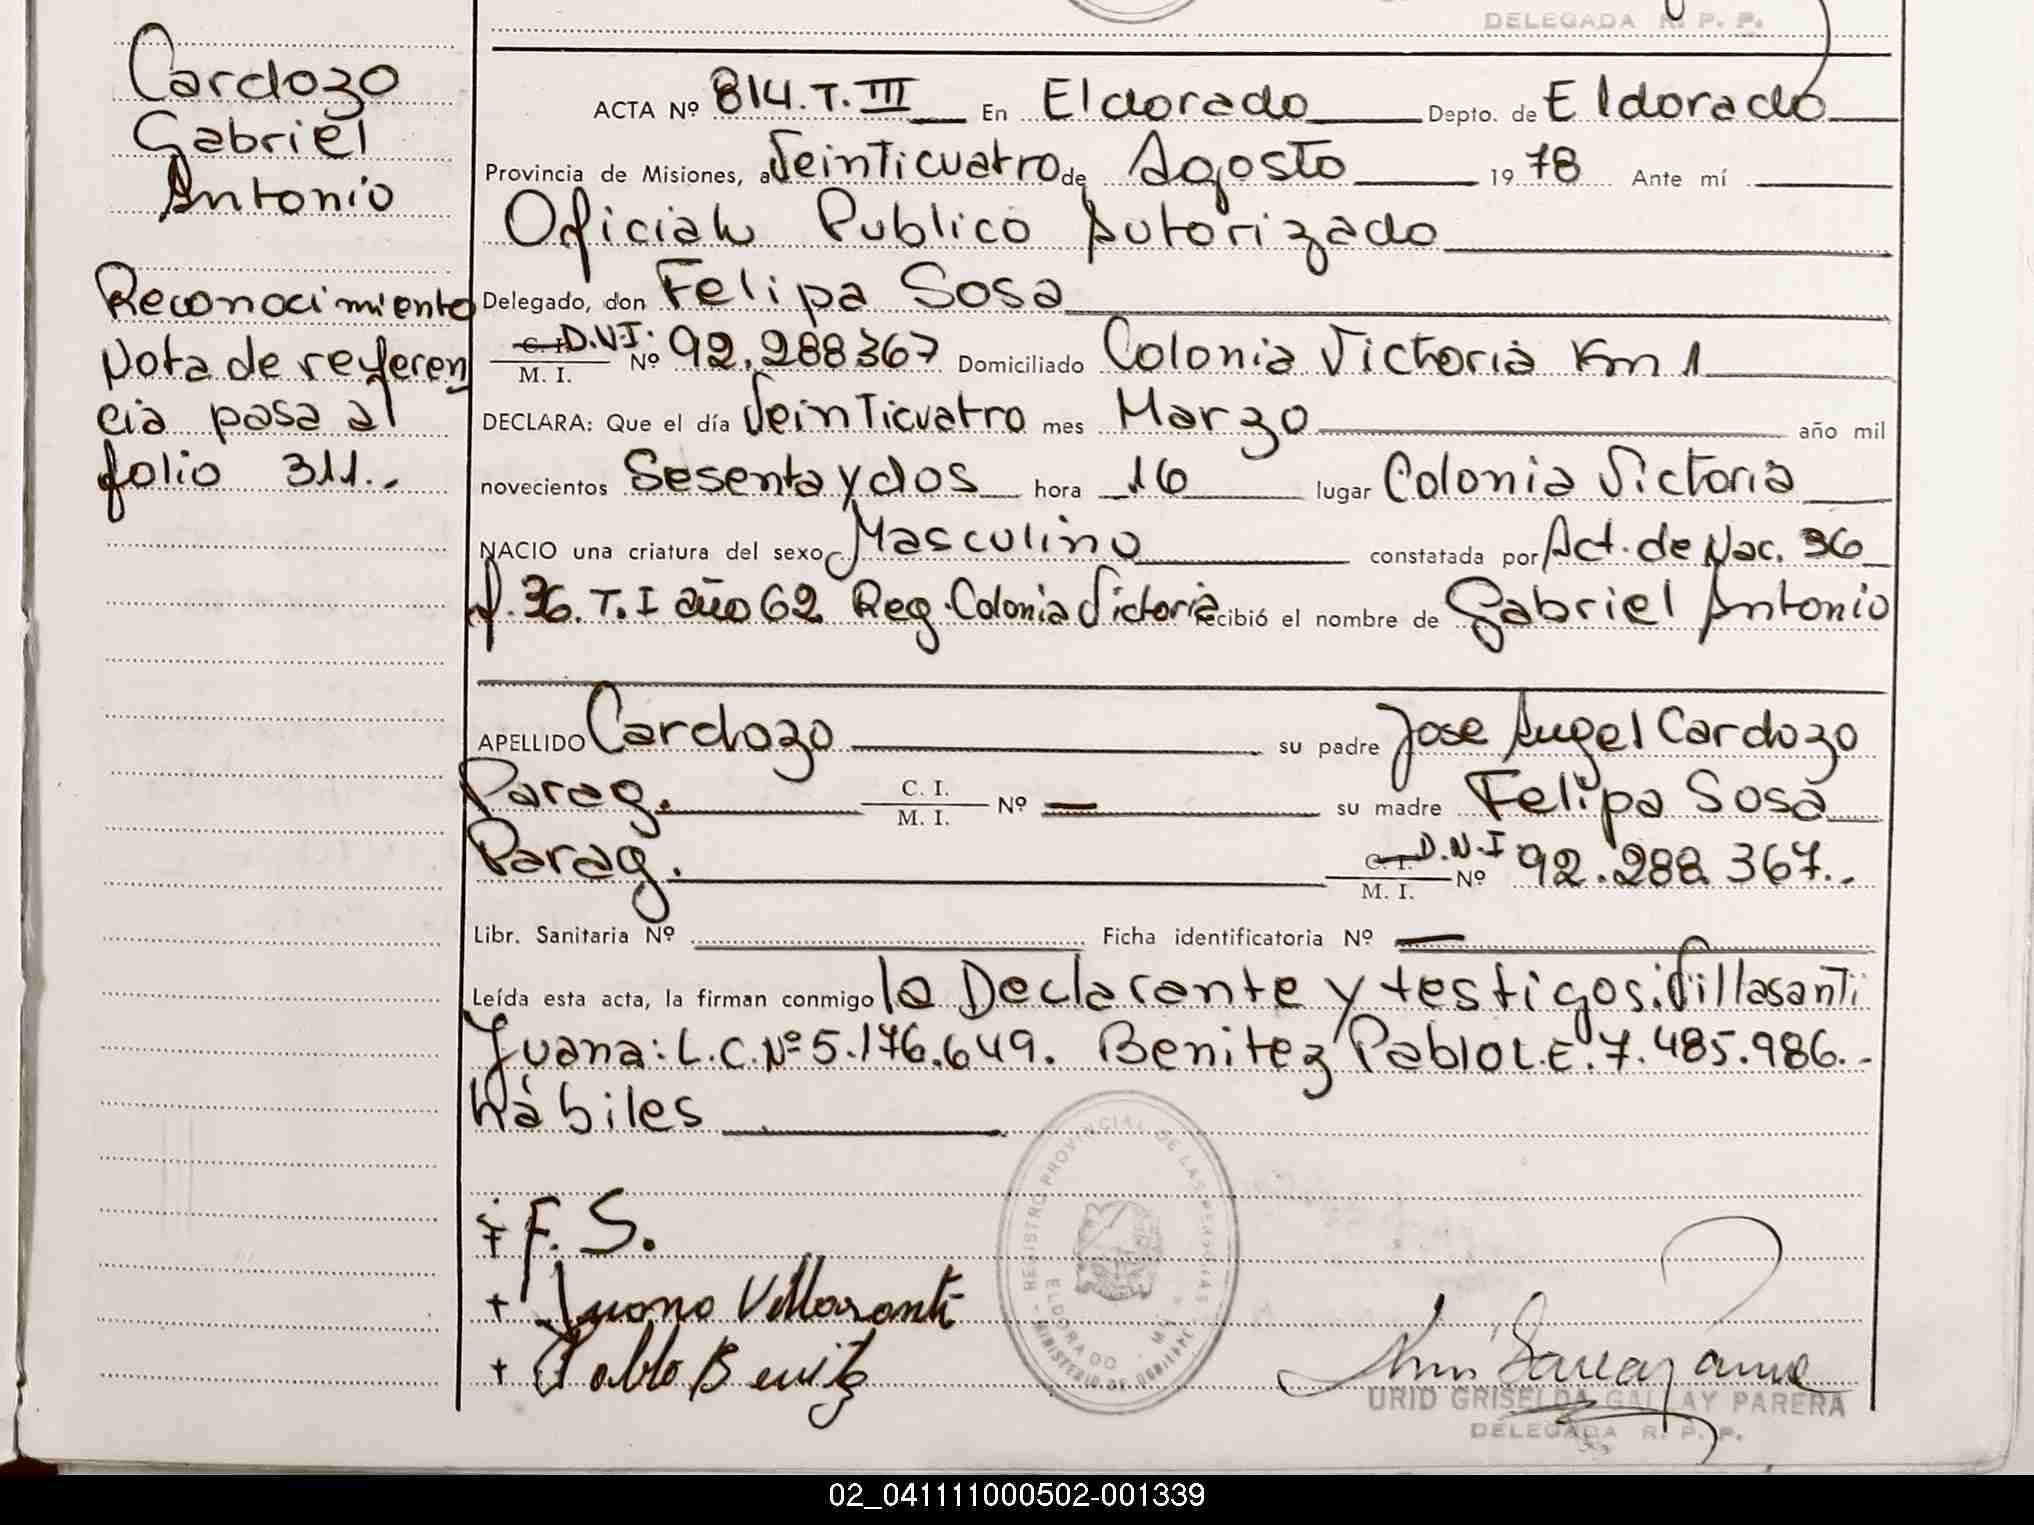 DELEGADA R. P. P.
Cardozo
Gabriel
Antonio
Reconocimiento
Nota de referen
cia pasa al
folio 311.-
ACTA Nº 814.T.III En Eldorado Depto. de Eldorado
Provincia de Misiones, a Veinticuatro de Agosto 1978 Ante mí
Oficial Publico Autorizado
Delegado, don Felipa Sosa
C. I. D.N.I. M. I. Nº 92.288367 Domiciliado Colonia Victoria Km 1
DECLARA: Que el día Veinticuatro mes Marzo año mil
novecientos Sesenta y dos hora 16 lugar Colonia Victoria
NACIO una criatura del sexo Masculino constatada por Act. de Nac. 36
f. 36. T. I año 62 Reg. Colonia Victoria recibió el nombre de Gabriel Antonio
APELLIDO Cardozo su padre Jose Angel Cardozo
Parag. C. I. M. I. Nº — su madre Felipa Sosa
Parag. C. I. D.N.I M. I. Nº 92.288.367.-
Libr. Sanitaria Nº Ficha identificatoria Nº —
Leída esta acta, la firman conmigo la Declarante y testigos: Villasanti
Juana: L.C.Nº 5.176.649. Benitez Pablo L.E. 7.485.986.-
hábiles
F. S.
+ Juana Villasanti
+ Pablo Benitez
REGISTRO PROVINCIAL DE LAS PERSONAS
ELDORADO
MINISTERIO DE GOBIERNO
URID GRISELDA GALLAY PARERA
DELEGADA R. P. P.
02_041111000502-001339